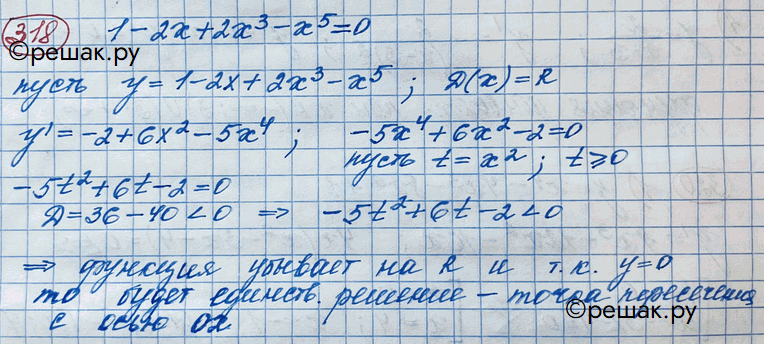 318 1-2x+2x³-x⁵=0
©решак.ру
пусть y=1-2x+2x³-x⁵; D(x)=R
y'=-2+6x²-5x⁴; -5x⁴+6x²-2=0
пусть t=x²; t⩾0
-5t²+6t-2=0
D=36-40<0 ⇒ -5t²+6t-2<0
⇒ функция убывает на R и т.к. y=0
то будет единств. решение - точка пересечения
с осью OX
©решак.ру